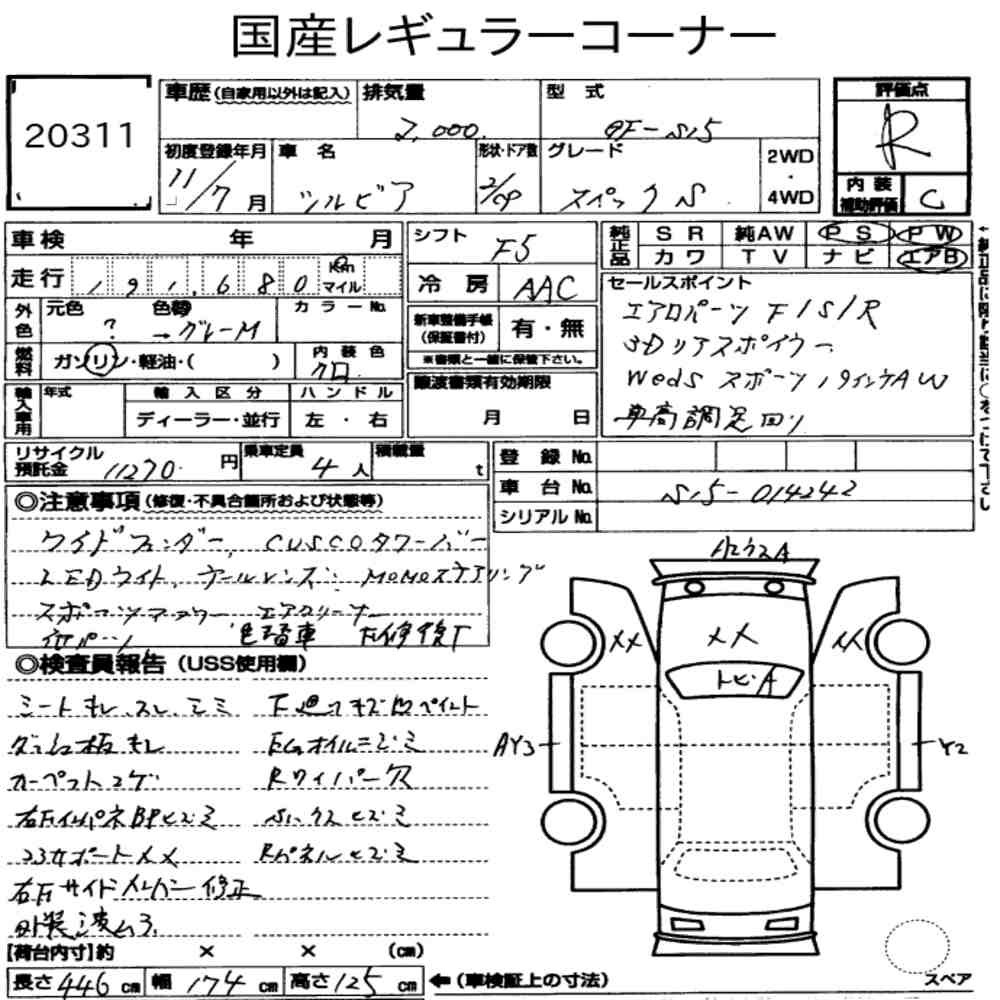 国産レギュラーコーナー
20311
車歴(自家用以外は記入) 排気量 型式 評価点
2,000. GF-S15 R
初度登録年月 車名 形状・ドア数 グレード 2WD・4WD
11/7月 シルビア 2/CP スペックS 内装補助評価 C
車検 年 月 シフト F5 純正品 SR 純AW PS PW
走行 191,680 Km マイル 冷房 AAC カワ TV ナビ エアB
外色 元色 色替 カラーNo. 新車整備手帳(保証書付) 有・無 セールスポイント
? →グレーM ※書類と一緒に保管下さい。 エアロパーツ F/S/R
燃料 ガソリン・軽油・( ) 内装色 クロ 3Dリアスポイラー
輸入車用 年式 輸入区分 ハンドル 譲渡書類有効期限 Weds スポーツ 19インチAW
ディーラー・並行 左・右 月 日 車高調足回り
リサイクル預託金 11270 円 乗車定員 4人 積載量 t 登録No.
車台No. S15-014242
シリアルNo.
◎注意事項(修復・不具合箇所および状態等)
ワイドフェンダー、CUSCOタワーバー
LEDライト、テールレンズ、MOMOステアリング
スポーツマフラー エアクリーナー
他パーツ 色替車
◎検査員報告(USS使用欄)
シートキレ、スレ、シミ 下廻りキズ凹ペイント
ダッシュ板キレ EGオイルニジミ
カーペットコゲ Rワイパー欠
右FインパネBPヒズミ
コアサポートXX Rパネルヒズミ
右Fサイドメンバー修正
外装波ムラ
XX XX XX
トビA
AY3 Y2
[荷台内寸]約 × × (cm)
長さ446cm 幅174cm 高さ125cm ←(車検証上の寸法) スペア